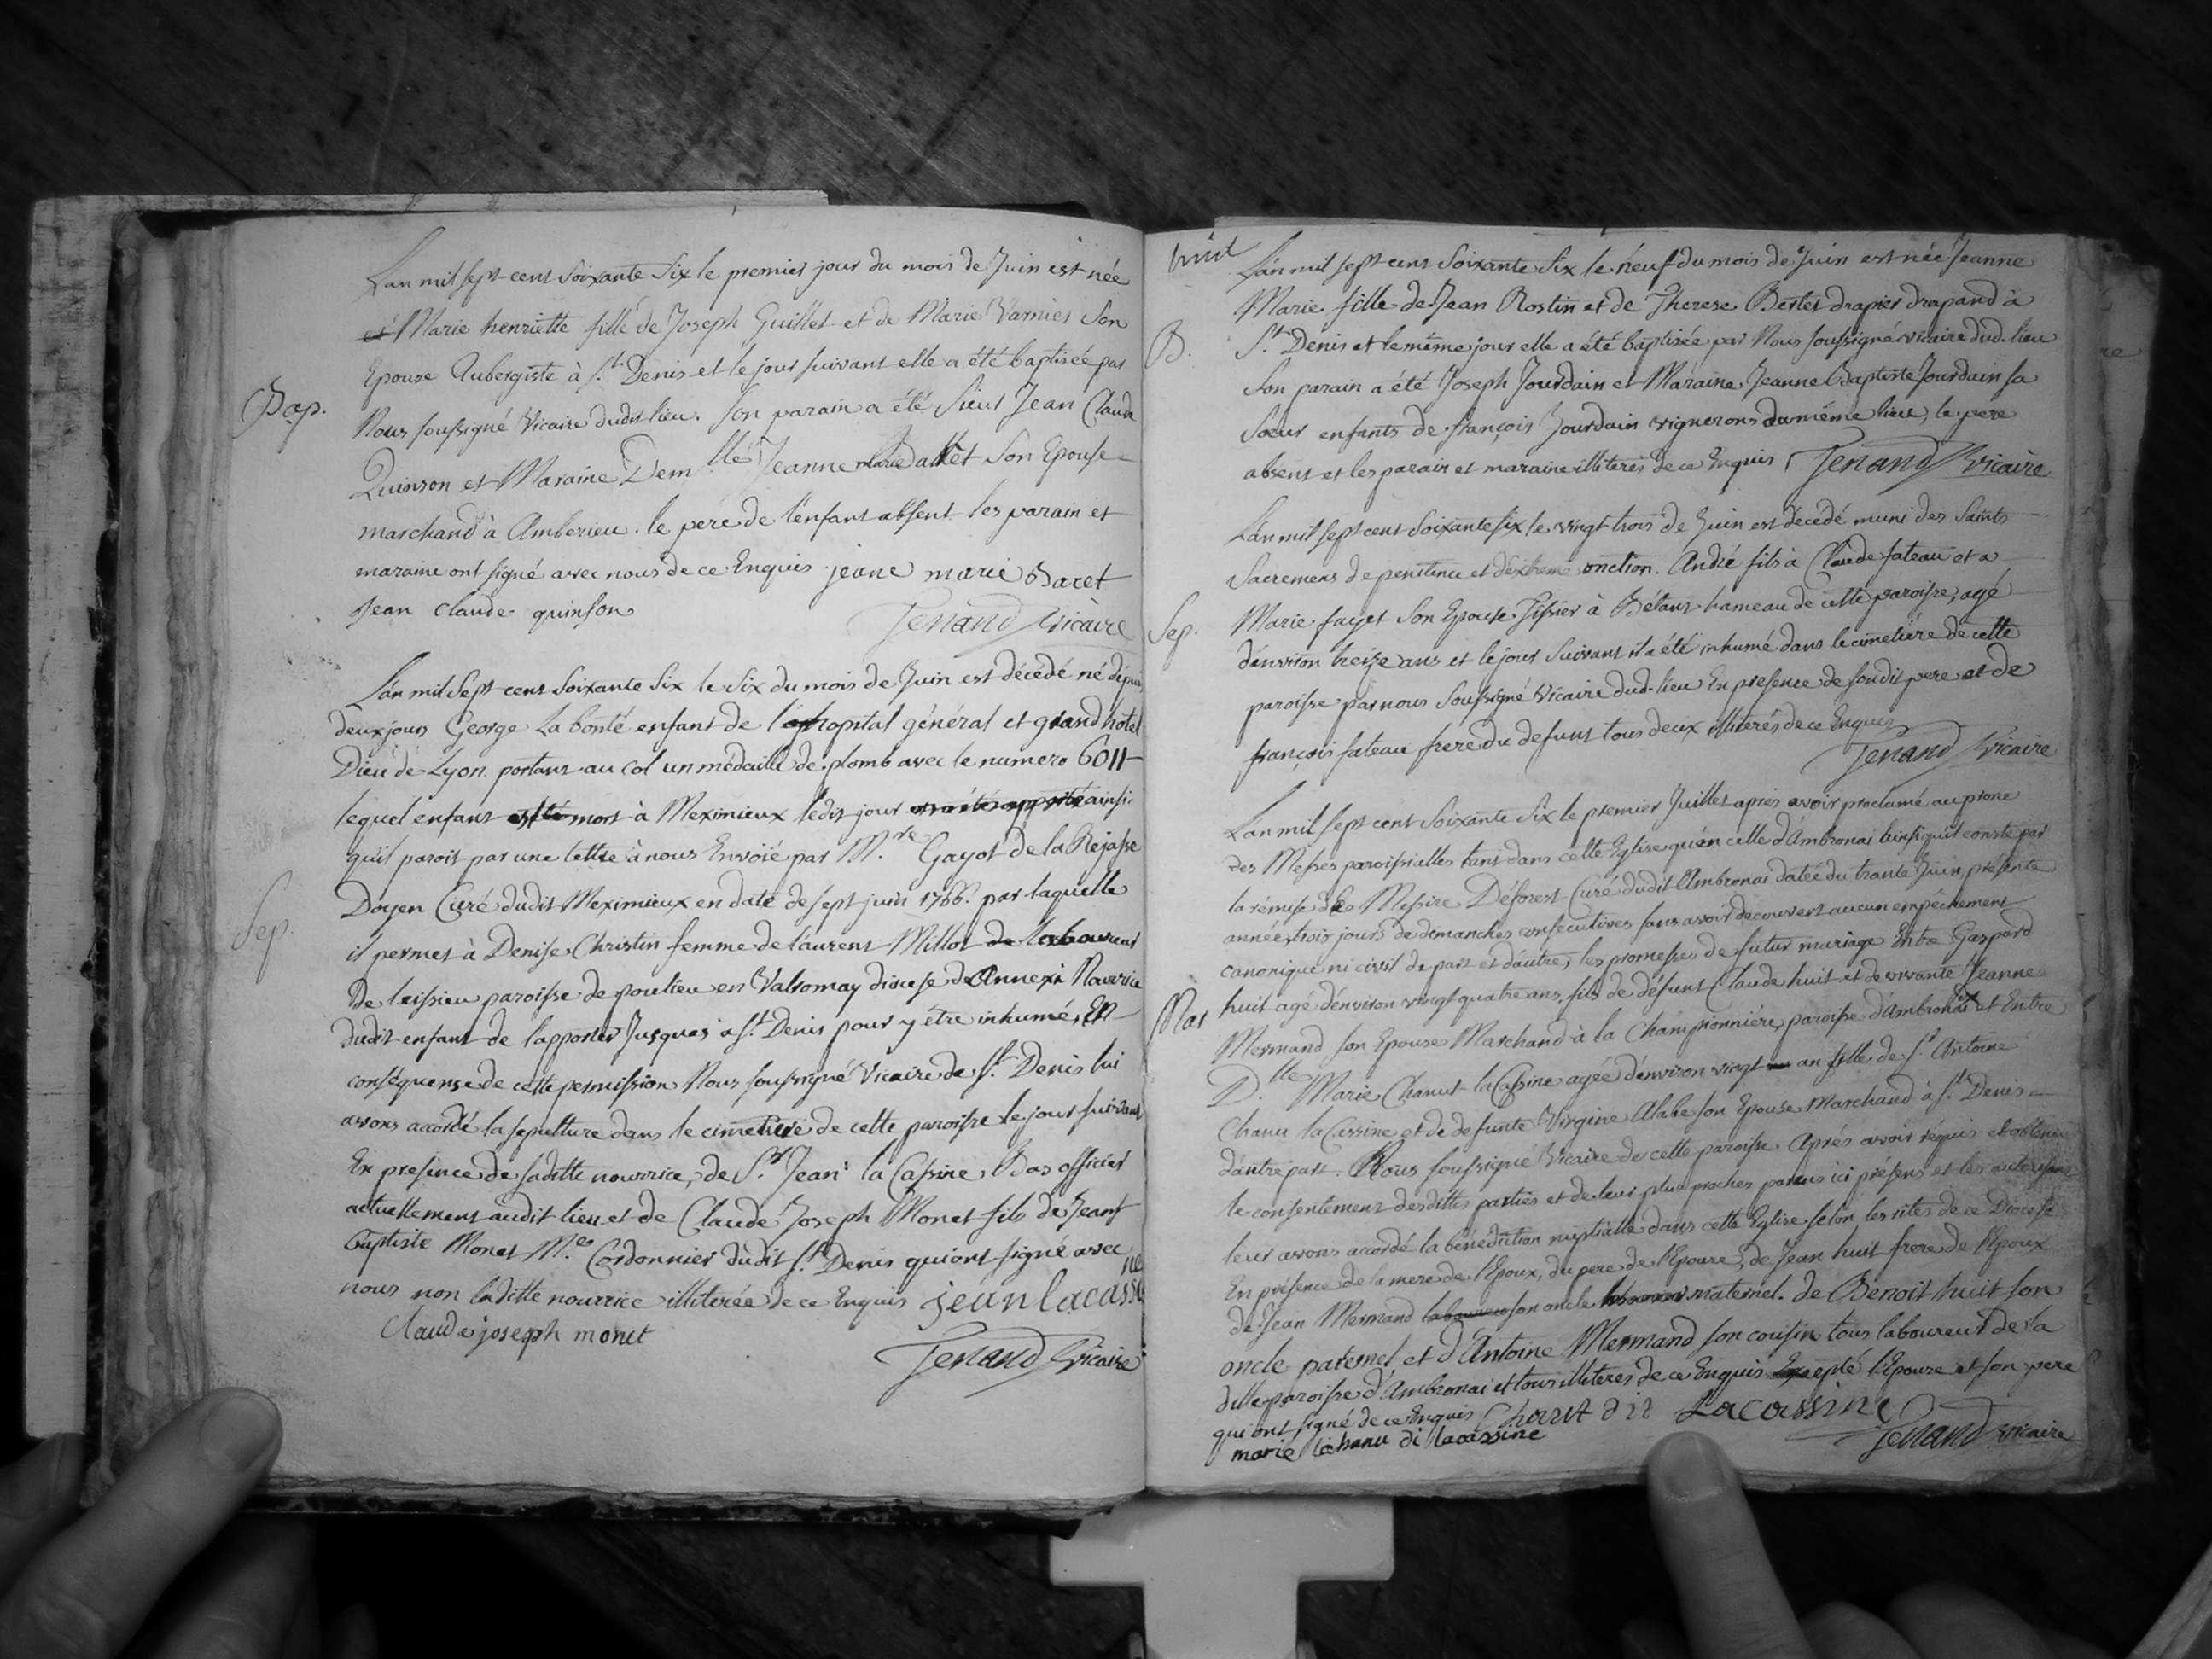 Lan mil sept cent soixante six le premier jour du mois de Juin est née
Marie henriette fille de Joseph Guillet et de Marie Varnier Son
Epouse Aubergiste à St. Denis et le jour suivant elle a été baptisée par
Bap.
Nous soussigné Vicaire dudit lieu. Son parain a été Sieur Jean Claude
Quinson et Maraine Demlle Jeanne Marie Son Epouse
marchand à Amberieu. le pere de l'enfant absent les parain et
maraine ont signé avec nous de ce Enquis jeane marie Baret
Jean Claude quinson
Jenand Vicaire
Lan mil Sept cent Soixante Six le Six du mois de Juin est décédé né depuis
deux jours George La bonté enfant de l'hopital général et grand hotel
Dieu de Lyon. portant au col un médaille de plomb avec le numero 6011
lequel enfant est mort à Meximieux ledit jour ainsi
qu'il paroit par une lettre à nous Envoïé par M.re Gayot de la Rejasse
Doyen Curé dudit Meximieux en date de sept juin 1766. par laquelle
Sep.
il permet à Denise Christin femme de laurent Millot de laboureur
de leissieu paroisse de poulieu en Valromay diocese de Annexi Nourrice
dudit enfant de l'apporter Jusques à St. Denis pour y étre inhumé, En
conséquense de cette permission Nous soussigné Vicaire de St. Denis lui
avons accordé la sepulture dans le cimetiere de cette paroisse le jour suivant
En presence de saditte nourrice, de Sr. Jean la Cassine Bas officier
actuellement audit lieu et de Claude Joseph Monet fils de Jean
baptiste Monet M.e Cordonnier dudit St. Denis qui ont signé avec
nous non laditte nourrice illiterée de ce Enquis jean lacassine
Claude joseph monet
Jenand Vicaire
huit
Lan mil sept cent Soixante Six le neuf du mois de Juin est née Jeanne
Marie fille de Jean Rostin et de Therese Berter drapier drapand à
B.
St. Denis et le même jour elle a été baptisée par Nous soussigné vicaire dud. lieu
Son parain a été Joseph Jourdain et Maraine Jeanne Baptiste Jourdain sa
Soeur enfants de françois Jourdain vignerons du même lieu, le pere
absent et les parain et maraine illiterés de ce Enquis Jenand Vicaire
Lan mil sept cent Soixante six le vingt trois de Juin est décedé muni des Saints
Sacremens de penitence et d'extreme onction. André fils à Claude fateau et a
Sep.
Marie fayet Son Epouse Tissier à Bétans hameau de cette paroisse, agé
d'environ treize ans et le jour Suivant il a été inhumé dans le cimetiére de cette
paroisse par nous Soussigné Vicaire dud. lieu En presence de sondit pere et de
françois fateau frere du defunt tous deux illiterés de ce Enquis
Jenand Vicaire
Lan mil sept cent Soixante Six le premier Juillet après avoir proclamé au prone
des Messes paroissialles tant dans cette Eglise qu'en celle d'Ambronai ainsi qu'il conste par
la rémise de Messire Déforest Curé dudit Ambronai datée du trante Juin présente
année, trois jours de dimanches consecutives sans avoir decouvert aucun empêchement
canonique ni civil de part et d'autre, les promesses de futur mariage Entre Gaspard
Mar
huit agé d'environ vingt quatre ans, fils de défunt Claude huit et de vivante Jeanne
Mermand son Epouse Marchand à la Championniére, paroisse d'Ambronai et Entre
D.lle Marie Chanut la Cassine agée d'environ vingt an fille de Sr. Antoine
Chanu la Cassine et de defunte Virgine Alabe son Epouse Marchand à St. Denis
d'autre part. Nous soussigné Vicaire de cette paroisse. Après avoir réquis et obtenu
le consentement desdittes parties et de leur plus proches parens ici présens et les autorisans
leur avons accordé la bénédiction nuptialle dans cette Eglise selon les rites de ce Diocese
En présence de la mere de l'Epoux, du pere de l'Epouse, de Jean huit frere de l'Epoux
de Jean Mermand son oncle maternel. de Benoit huit son
oncle paternel et d'Antoine Mermand son cousin tous laboureur de la
ditte paroisse d'Ambronai et tous illiteres de ce Enquis Excepté l'Epouse et son pere
qui ont signé de ce Enquis Chanut dit Lacassine
marie lachanu di lacassine
Jenand vicaire